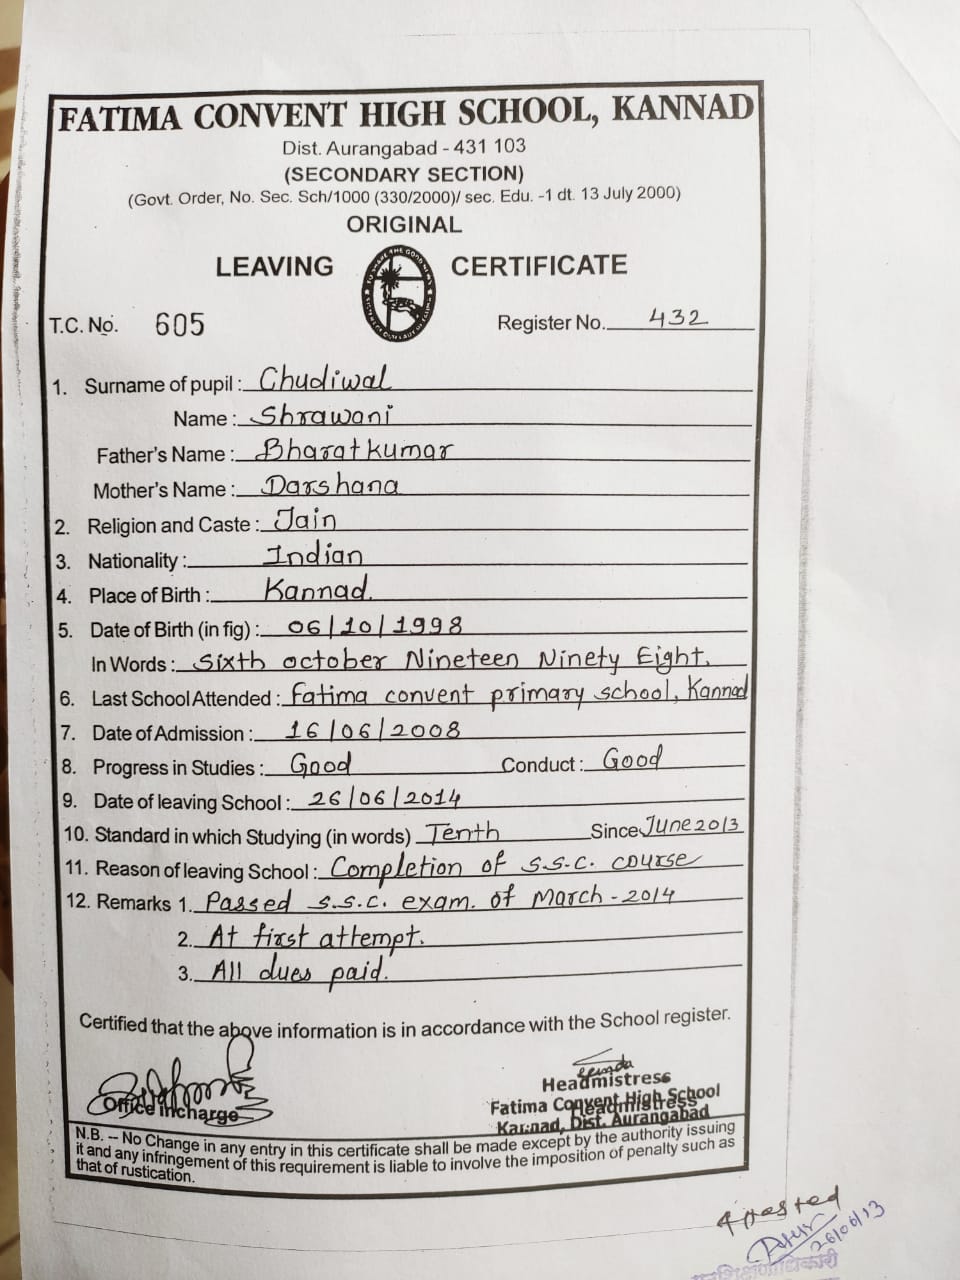 FATIMA CONVENT HIGH SCHOOL, KANNAD
Dist. Aurangabad - 431 103
(SECONDARY SECTION)
(Govt. Order, No. Sec. Sch/1000 (330/2000)/ sec. Edu. -1 dt. 13 July 2000)
ORIGINAL
LEAVING CERTIFICATE
T.C. No. 605 Register No. 432
1. Surname of pupil : Chudiwal
Name : Shrawani
Father's Name : Bharatkumar
Mother's Name : Darshana
2. Religion and Caste : Jain
3. Nationality : Indian
4. Place of Birth : Kannad.
5. Date of Birth (in fig) : 06/10/1998
In Words : Sixth october Nineteen Ninety Eight.
6. Last School Attended : Fatima convent primary school, Kannad
7. Date of Admission : 16/06/2008
8. Progress in Studies : Good Conduct : Good
9. Date of leaving School : 26/06/2014
10. Standard in which Studying (in words) Tenth Since June 2013
11. Reason of leaving School : Completion of S.S.C. course
12. Remarks 1. Passed S.S.C. exam. of March - 2014
2. At first attempt.
3. All dues paid.
Certified that the above information is in accordance with the School register.
Office Incharge
Headmistress
Fatima Convent High School
Headmistress
Kannad, Dist. Aurangabad
N.B. -- No Change in any entry in this certificate shall be made except by the authority issuing
it and any infringement of this requirement is liable to involve the imposition of penalty such as
that of rustication.
Attested
26/06/13